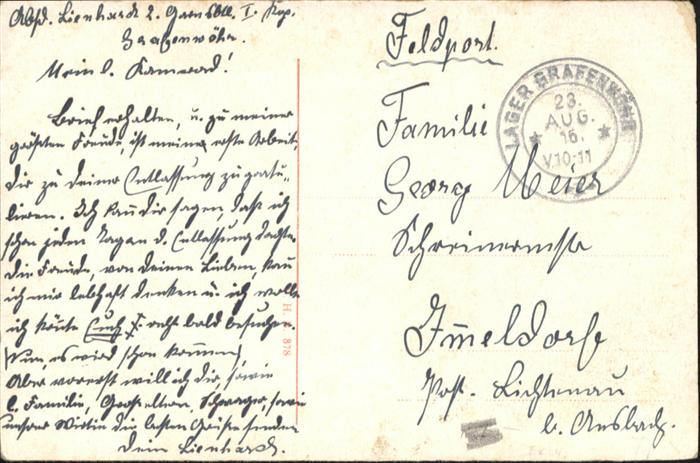 Absd. Lienhardt 2. Garnsbtl. I. Kop.
Grafenwöhr.
Mein l. Kamerad!
Brief erhalten, u. zu meiner
größten Freude, ist meine erste Arbeit,
dir zu deiner Entlassung zu gratu-
lieren. Ich kann dir sagen, daß ich
schon jeden Tag an d. Entlassung dachte.
Die Freude, von deinen Lieben, kann
ich mir lebhaft denken u. ich wollte
ich könnte Euch recht bald besuchen.
Nun, es wird schon kommen,
Aber vorerst will ich dir, sowie
l. Familie, Großeltern, Schwager, sowie
unsrer Wirtin die besten Grüße senden
Dein Lienhardt.
H. K. 878
Feldpost.
LAGER GRAFENWÖHR
23.
AUG.
16.
V.10-11
Familie
Georg Meier
Schreinermstr
Immeldorf
Post. Lichtenau
b. Ansbach.